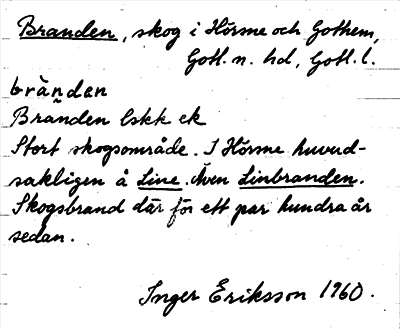 Branden, skog i Hörsne och Gothem,
Gotl. n. hd, Gotl. l.
brànden
Brànden Cskk ek
Stort skogsområde. I Hörsne huvud-
sakligen å Line. Även Linbranden.
Skogsbrand där för ett par hundra år
sedan.
Inger Eriksson 1960.